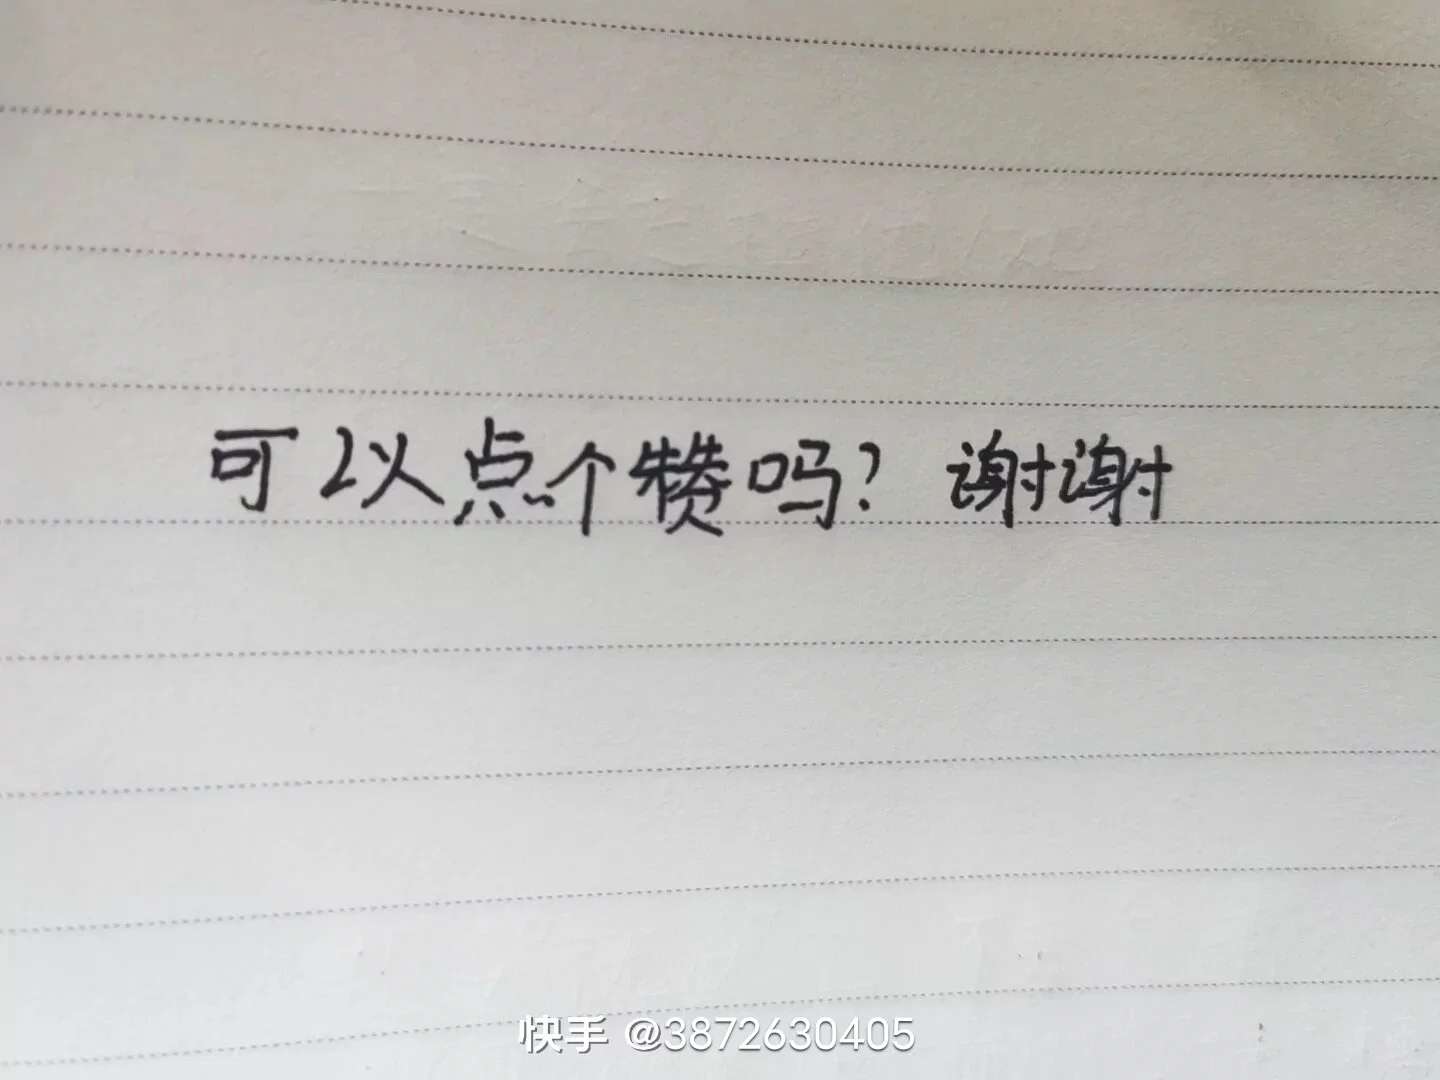 可以点个赞吗？谢谢
快手 @3872630405